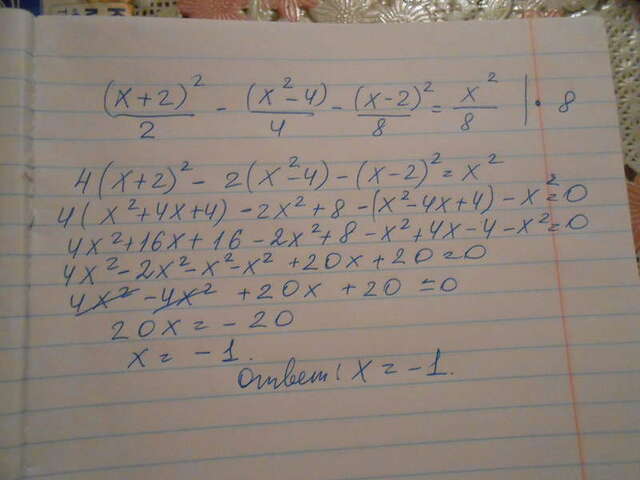 (x+2)²/2 - (x²-4)/4 - (x-2)²/8 = x²/8 | · 8
4(x+2)² - 2(x²-4) - (x-2)² = x²
4(x²+4x+4) - 2x²+8 - (x²-4x+4) - x²=0
4x²+16x+16 - 2x²+8 - x²+4x-4 - x²=0
4x²-2x²-x²-x² +20x+20=0
4x² - 4x² +20x +20 =0
20x = -20
x = -1.
Ответ: x = -1.